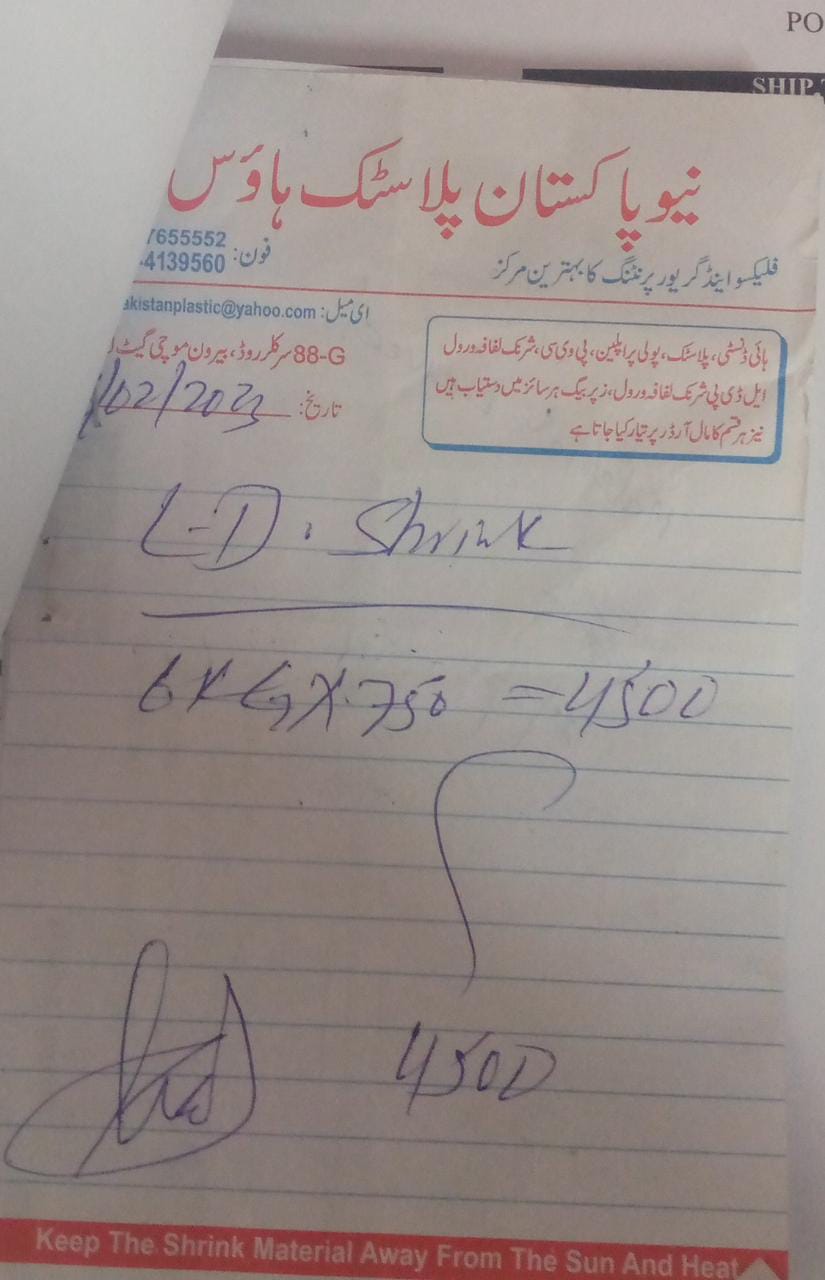 PO
SHIP
نیو پاکستان پلاسٹک ہاؤس
فلیکسو اینڈ گریور پرنٹنگ کا بہترین مرکز
فون: 7655552
4139560
ای میل: akistanplastic@yahoo.com
88-G سرکلر روڈ، بیرون موچی گیٹ
ہائی ڈنسٹی، پلاسٹک، پولی پراپلین، پی وی سی، شرنک لفافہ ورول
ایل ڈی پی شرنک لفافہ ورول، زپر بیگ ہر سائز میں دستیاب ہیں
نیز ہر قسم کا مال آرڈر پر تیار کیا جاتا ہے
تاریخ: /02/2023
L-D. Shrink
6KG X 750 = 4500
4500
Keep The Shrink Material Away From The Sun And Heat